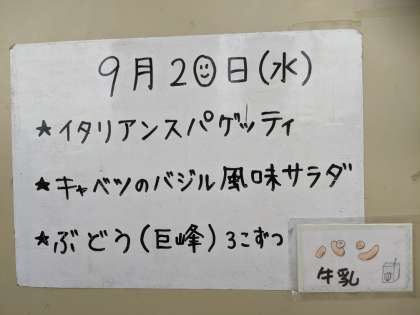 9月20日(水)
★イタリアンスパゲッティ
★キャベツのバジル風味サラダ
★ぶどう(巨峰)3こずつ
牛乳